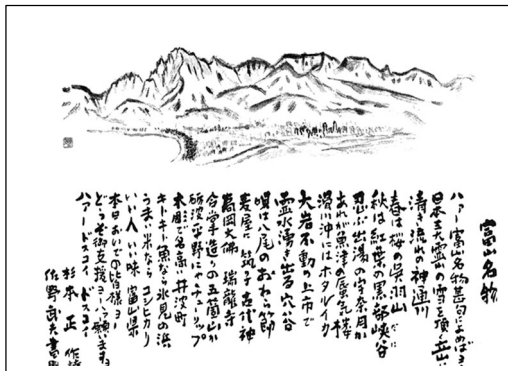 富山名物
ハアー富山名物甚句によめばヨー
日本三大霊山の雪を頂く立山に
清き流れの神通川
春は桜の呉羽山
秋は紅葉の黒部峡谷
忍ぶ出湯の宇奈月か
あれが魚津の蜃気楼
滑川沖にはホタルイカ
大岩不動の上市で
霊水湧き出る穴か谷
唄は八尾のおわら節
麦屋に筑子古代神
高岡大佛 瑞龍寺
合掌造りの五箇山か
砺波平野にゃチューリップ
木彫で名高い井波町
キトキト魚なら氷見の浜
うまい米ならコシヒカリ
いい人いい味富山県
本日おいでの皆様ヨー
どうぞ御支援ヨー願いますヨー
ハアードスコイ ドスコイ
杉本 正 作詩
佐野